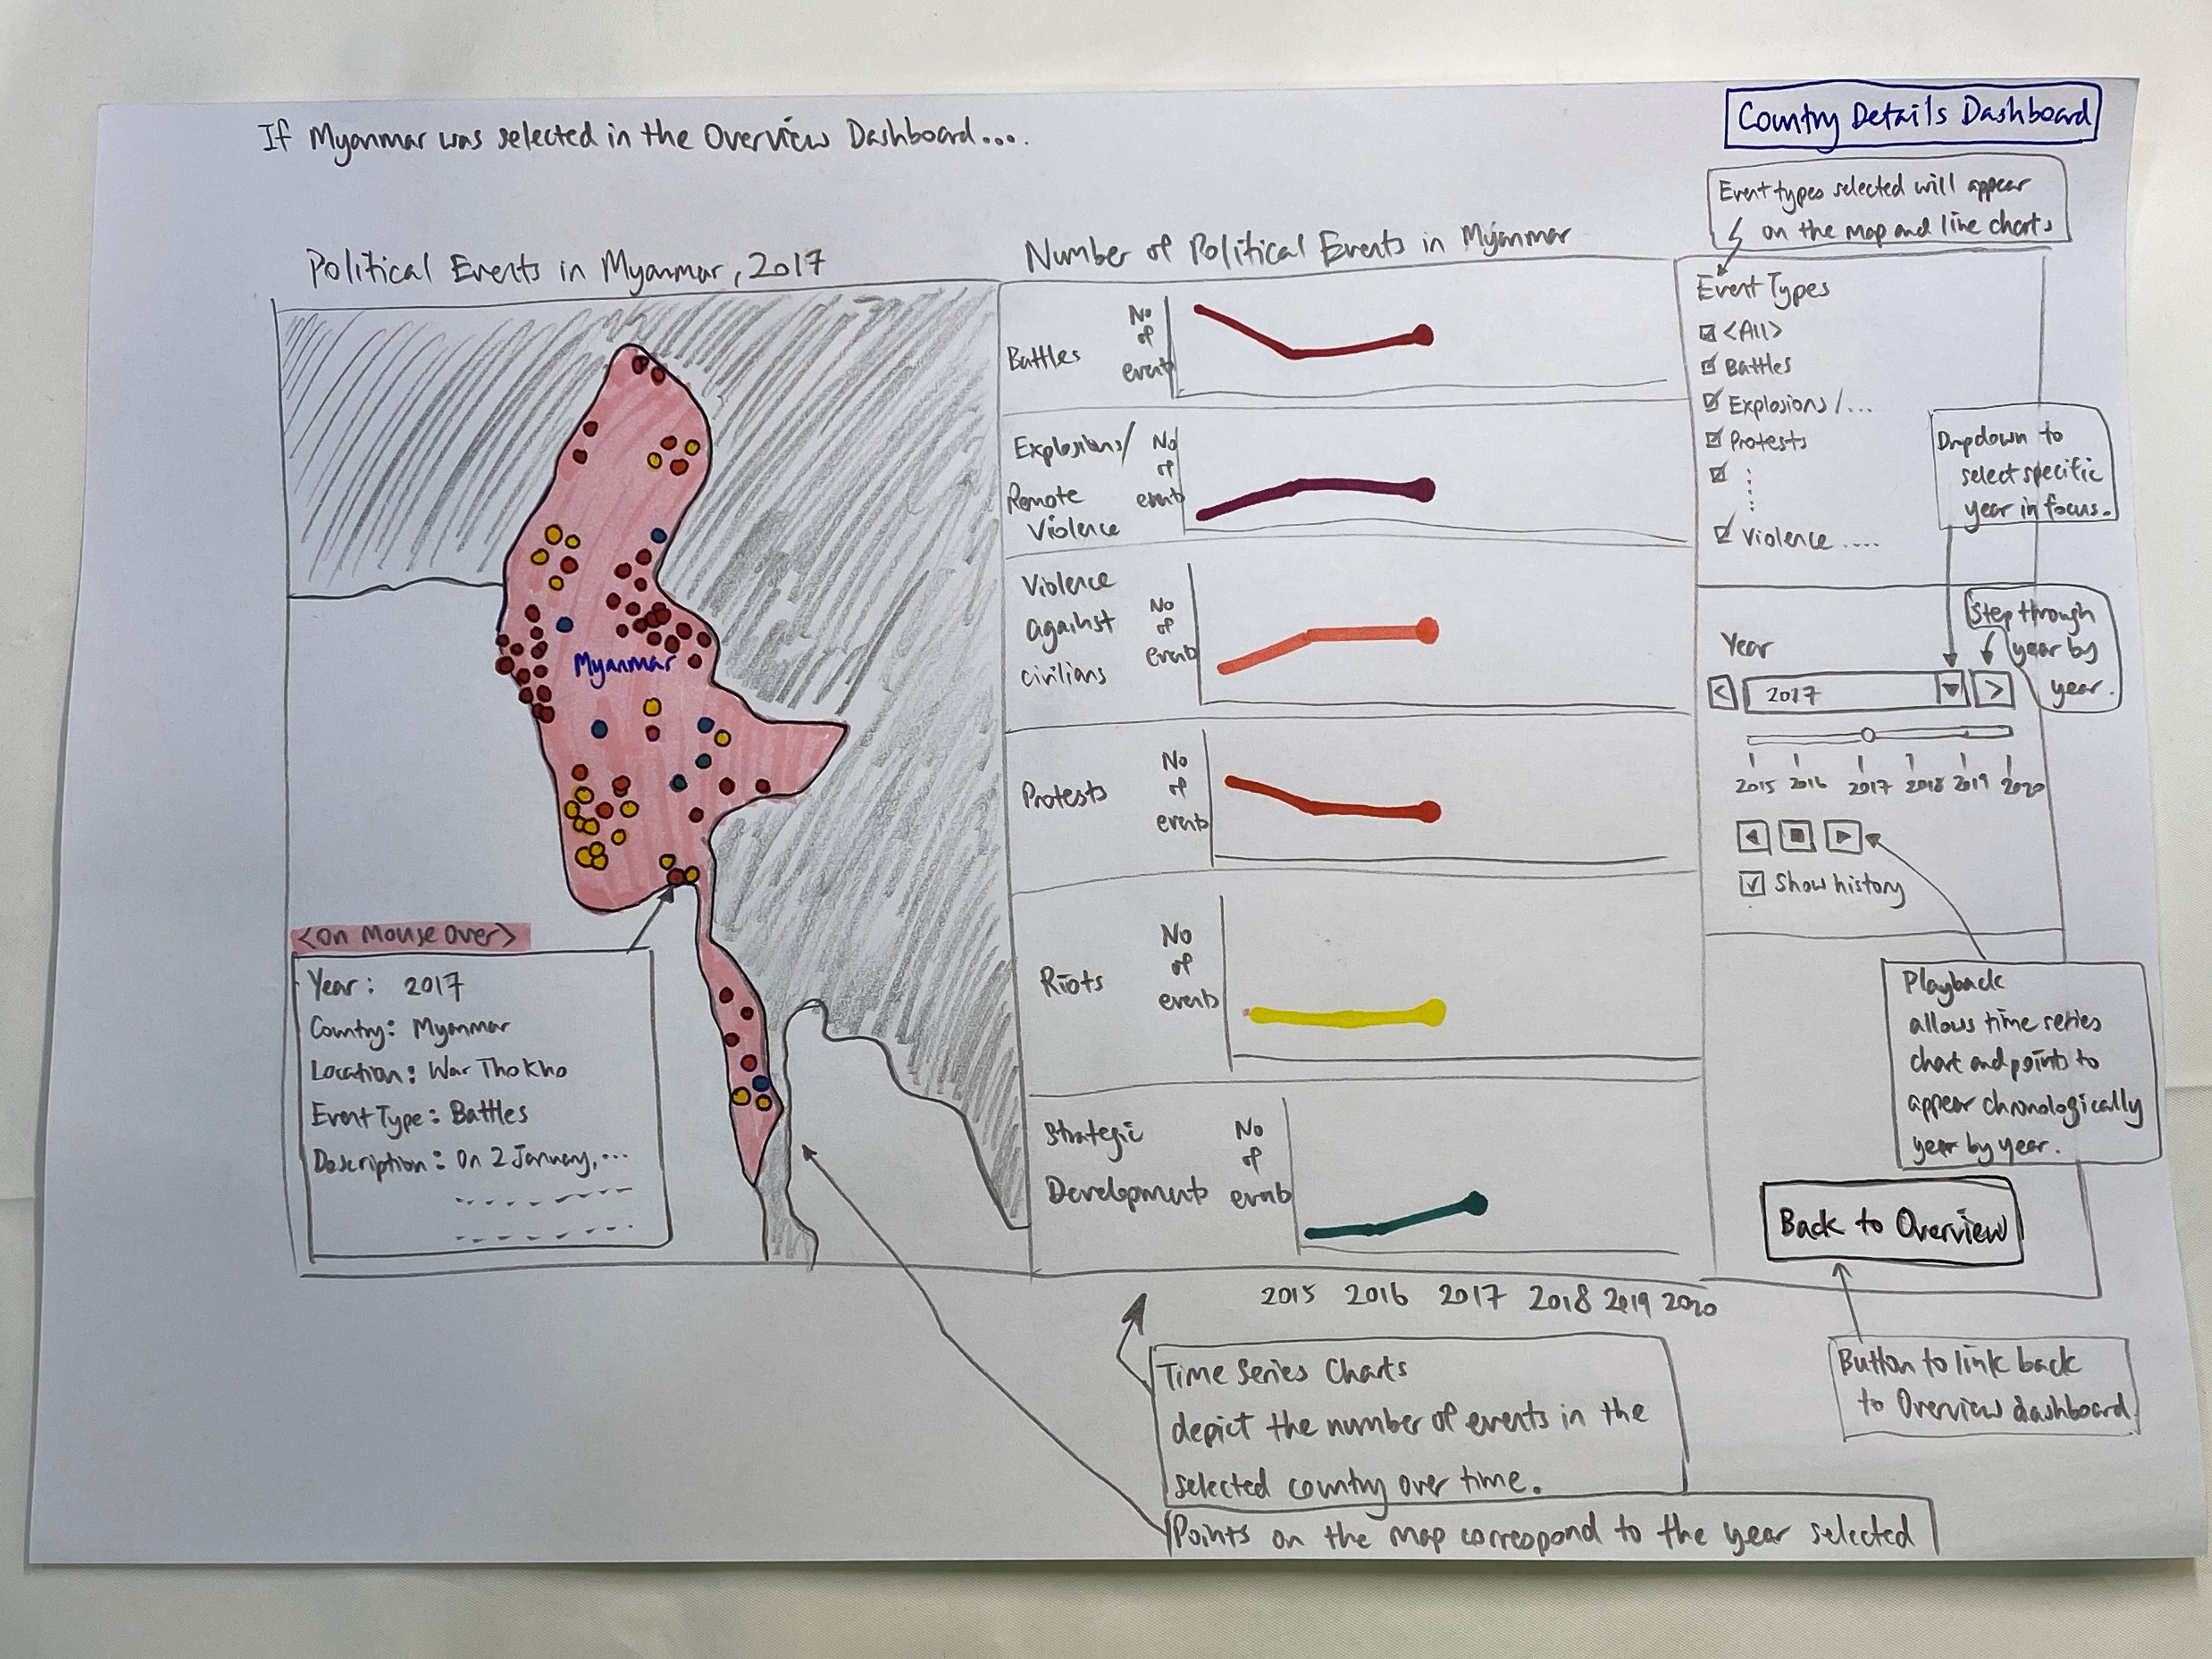 If Myanmar was selected in the Overview Dashboard....
Country Details Dashboard
Event types selected will appear
on the map and line charts
Political Events in Myanmar, 2017
Myanmar
<On Mouse Over>
Year: 2017
Country: Myanmar
Location: War Tho Kho
Event Type: Battles
Description: On 2 January,...
Number of Political Events in Myanmar
Battles
No
of
events
Explosions/
Remote
Violence
No
of
events
Violence
against
civilians
No
of
events
Protests
No
of
events
Riots
No
of
events
Strategic
Developments
No
of
events
2015 2016 2017 2018 2019 2020
Event Types
<All>
Battles
Explosions/...
Protests
Violence ....
Dropdown to
select specific
year in focus.
Step through
year by
year.
Year
< 2017 >
2015 2016 2017 2018 2019 2020
Show history
Playback
allows time series
chart and points to
appear chronologically
year by year.
Back to Overview
Button to link back
to Overview dashboard
Time Series Charts
depict the number of events in the
selected country over time.
Points on the map correspond to the year selected